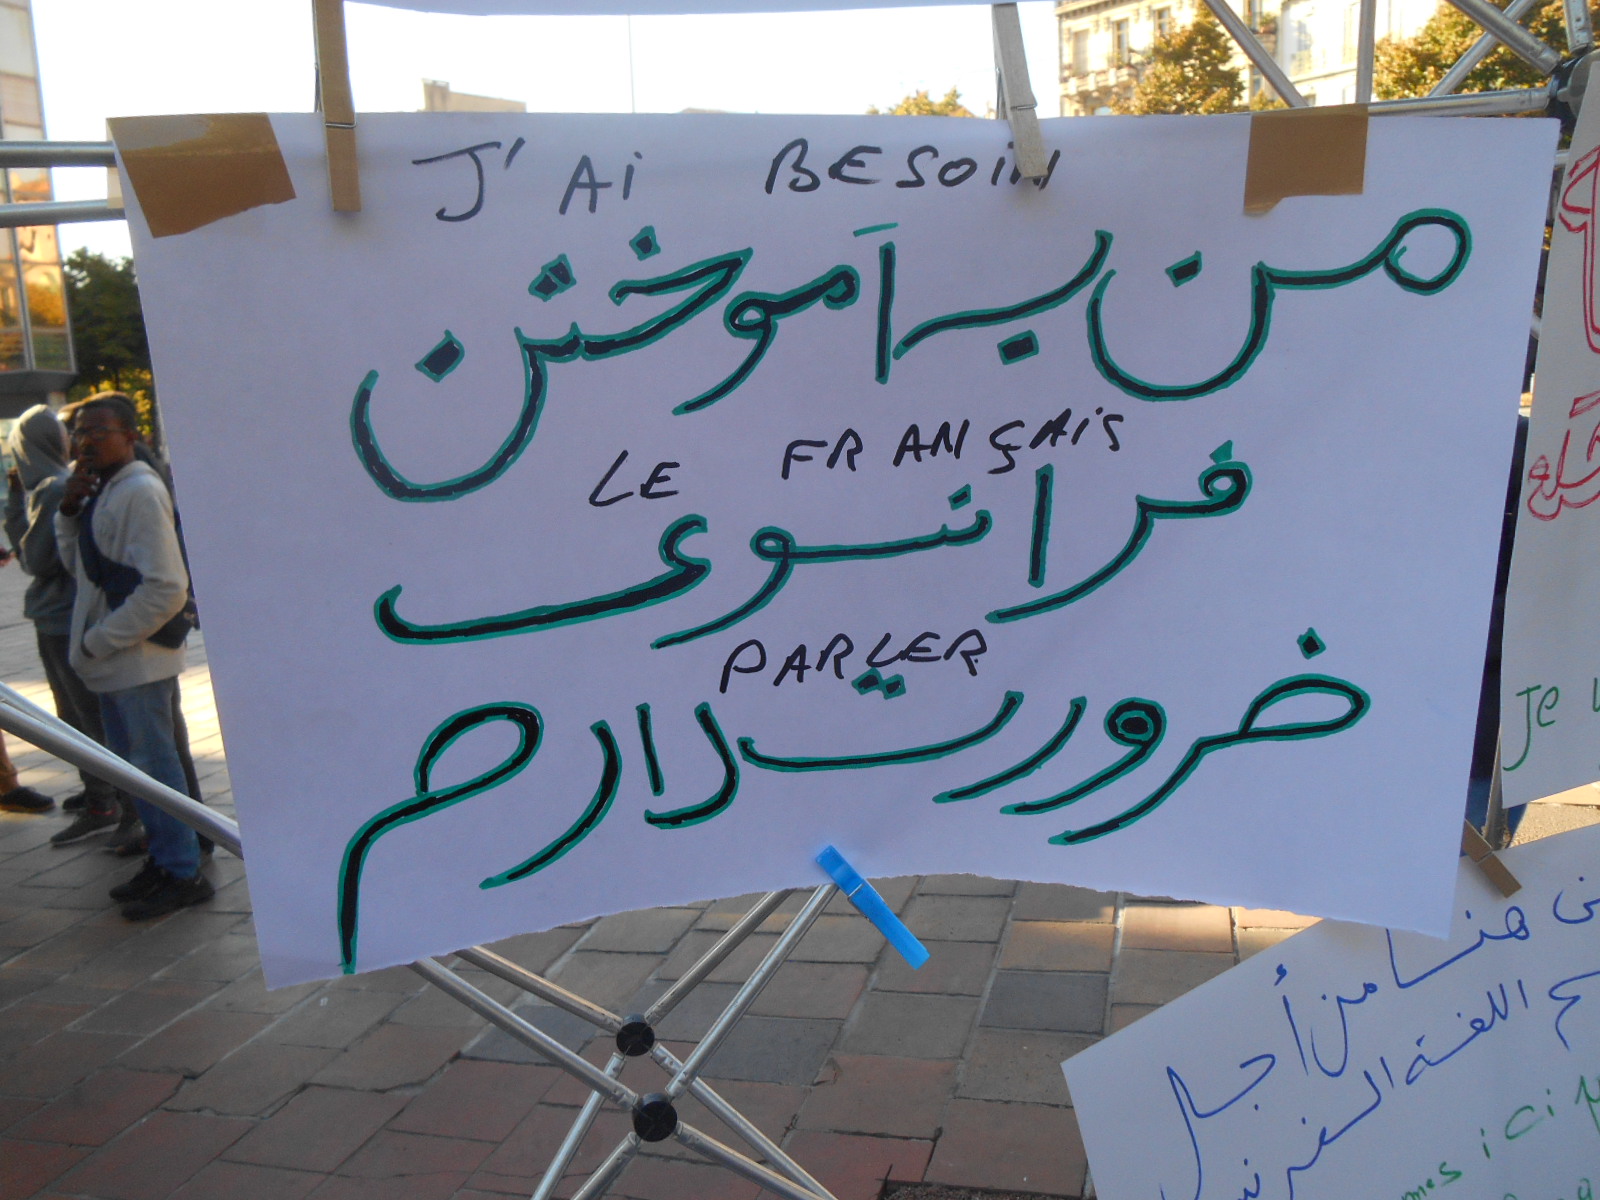 J'AI BESOIN
من به آموختن
LE FRANÇAIS
فرانسوی
PARLER
ضرورت دارم
Je
هنا من أجل
اللغة الفرنس
ici